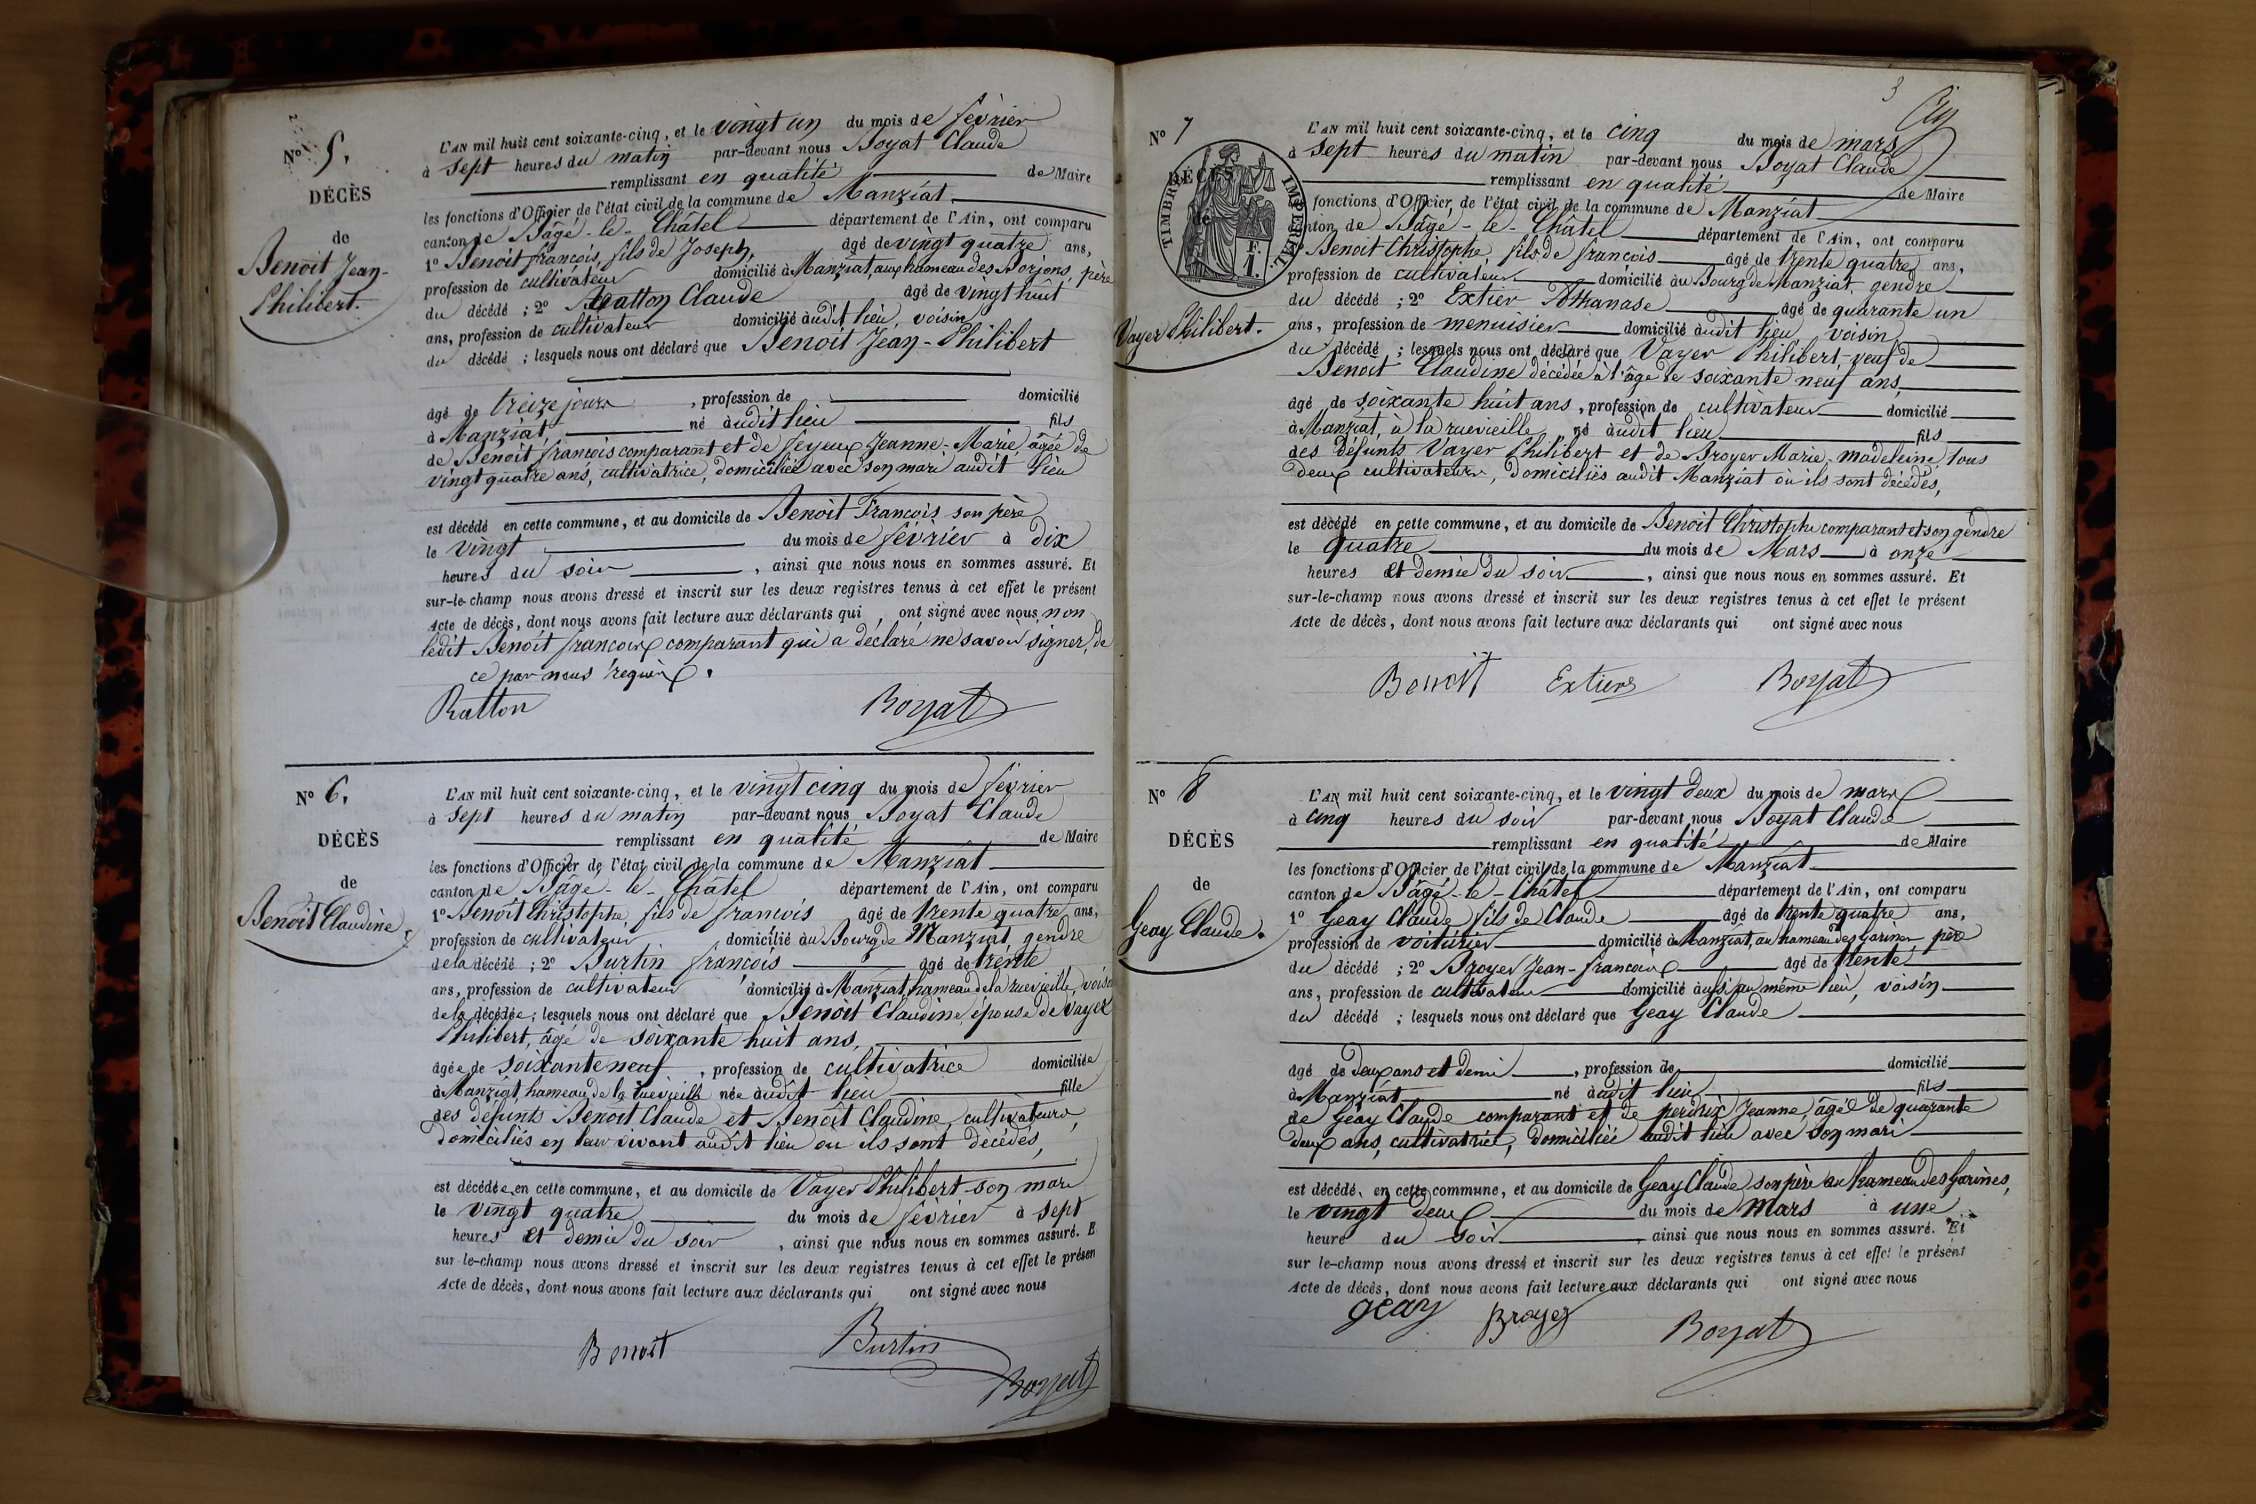 N° 5.
DÉCÈS
de
Benoit Jean-
Philibert.
L'AN mil huit cent soixante-cinq, et le vingt un du mois de février
à sept heures du matin par-devant nous Boyat Claude
remplissant en qualité de Maire
les fonctions d'Officier de l'état civil de la commune de Manziat
canton de Bâgé-le-Châtel département de l'Ain, ont comparu
1° Benoit françois, fils de Joseph, âgé de vingt quatre ans,
profession de cultivateur domicilié à Manziat, au hameau des Dorjons, père
du décédé ; 2° Ratton Claude âgé de vingt huit
ans, profession de cultivateur domicilié audit lieu, voisin
du décédé ; lesquels nous ont déclaré que Benoit Jean-Philibert
âgé de treize jours , profession de domicilié
à Manziat, né audit lieu fils
de Benoit françois comparant et de feyeux Jeanne-Marie, âgée de
vingt quatre ans, cultivatrice, domiciliée avec son mari audit lieu
est décédé en cette commune, et au domicile de Benoit François son père
le vingt du mois de février à dix
heures du soir , ainsi que nous nous en sommes assuré. Et
sur-le-champ nous avons dressé et inscrit sur les deux registres tenus à cet effet le présent
Acte de décès, dont nous avons fait lecture aux déclarants qui ont signé avec nous, non
ledit Benoit françois comparant qui a déclaré ne savoir signer, de
ce par nous requis.
Ratton Boyat
N° 6.
DÉCÈS
de
Benoit Claudine.
L'AN mil huit cent soixante-cinq, et le vingt cinq du mois de février
à sept heures du matin par-devant nous Boyat Claude
remplissant en qualité de Maire
les fonctions d'Officier de l'état civil de la commune de Manziat
canton de Bâgé-le-Châtel département de l'Ain, ont comparu
1° Benoit Christophe fils de françois âgé de trente quatre ans,
profession de cultivateur domicilié au Bourg de Manziat, gendre
de la décédé ; 2° Burtin françois âgé de trente
ans, profession de cultivateur domicilié à Manziat, hameau de la ruevieille, voisin
de la décédée ; lesquels nous ont déclaré que Benoit Claudine, épouse de Vayer
Philibert, âgé de soixante huit ans,
âgée de soixante neuf , profession de cultivatrice domiciliée
à Manziat hameau de la ruevieille née audit lieu fille
des défunts Benoit Claude et Benoit Claudine, cultivateurs,
domiciliés en leur vivant audit lieu où ils sont décédés,
est décédée en cette commune, et au domicile de Vayer Philibert son mari
le vingt quatre du mois de février à sept
heures et demie du soir , ainsi que nous nous en sommes assuré. E
sur-le-champ nous avons dressé et inscrit sur les deux registres tenus à cet effet le présen
Acte de décès, dont nous avons fait lecture aux déclarants qui ont signé avec nous
Benoit Burtin
Boyat
3
N° 7
DÉC
TIMBRE IMPERIAL
Vayer Philibert.
L'AN mil huit cent soixante-cinq, et le cinq du mois de mars
à sept heures du matin par-devant nous Boyat Claude
remplissant en qualité de Maire
fonctions d'Officier de l'état civil de la commune de Manziat
canton de Bâgé-le-Châtel département de l'Ain, ont comparu
Benoit Christophe, fils de françois âgé de trente quatre ans,
profession de cultivateur domicilié au Bourg de Manziat, gendre
du décédé ; 2° Extier Athanase âgé de quarante un
ans, profession de menuisier domicilié audit lieu, voisin
du décédé ; lesquels nous ont déclaré que Vayer Philibert veuf de
Benoit Claudine décédée à l'âge de soixante neuf ans
âgé de soixante huit ans, profession de cultivateur domicilié
à Manziat, à la ruevieille né audit lieu fils
des défunts Vayer Philibert et de Broyer Marie-madeleine, tous
deux cultivateurs, domiciliés audit Manziat où ils sont décédés,
est décédé en cette commune, et au domicile de Benoit Christophe comparant et son gendre
le quatre du mois de Mars à onze
heures et demie du soir , ainsi que nous nous en sommes assuré. Et
sur-le-champ nous avons dressé et inscrit sur les deux registres tenus à cet effet le présent
Acte de décès, dont nous avons fait lecture aux déclarants qui ont signé avec nous
Benoit Extier Boyat
N° 8
DÉCÈS
de
Geay Claude.
L'AN mil huit cent soixante-cinq, et le vingt deux du mois de mars
à cinq heures du soir par-devant nous Boyat Claude
remplissant en qualité de Maire
les fonctions d'Officier de l'état civil de la commune de Manziat
canton de Bâgé-le-Châtel département de l'Ain, ont comparu
1° Geay Claude fils de Claude âgé de trente quatre ans,
profession de voiturier domicilié à Manziat, au hameau des Garines père
du décédé ; 2° Broyer Jean-françois âgé de trente
ans, profession de cultivateur domicilié aussi au même lieu, voisin
du décédé ; lesquels nous ont déclaré que Geay Claude
âgé de deux ans et demi , profession de domicilié
à Manziat né audit lieu fils
de Geay Claude comparant et de perdrix Jeanne, âgée de quarante
deux ans, cultivatrice, domiciliée audit lieu avec son mari
est décédé, en cette commune, et au domicile de Geay Claude son père au hameau des Garines,
le vingt deux du mois de Mars à une
heure du soir , ainsi que nous nous en sommes assuré. Et
sur le-champ nous avons dressé et inscrit sur les deux registres tenus à cet effet le présent
Acte de décès, dont nous avons fait lecture aux déclarants qui ont signé avec nous
geay Broyer Boyat